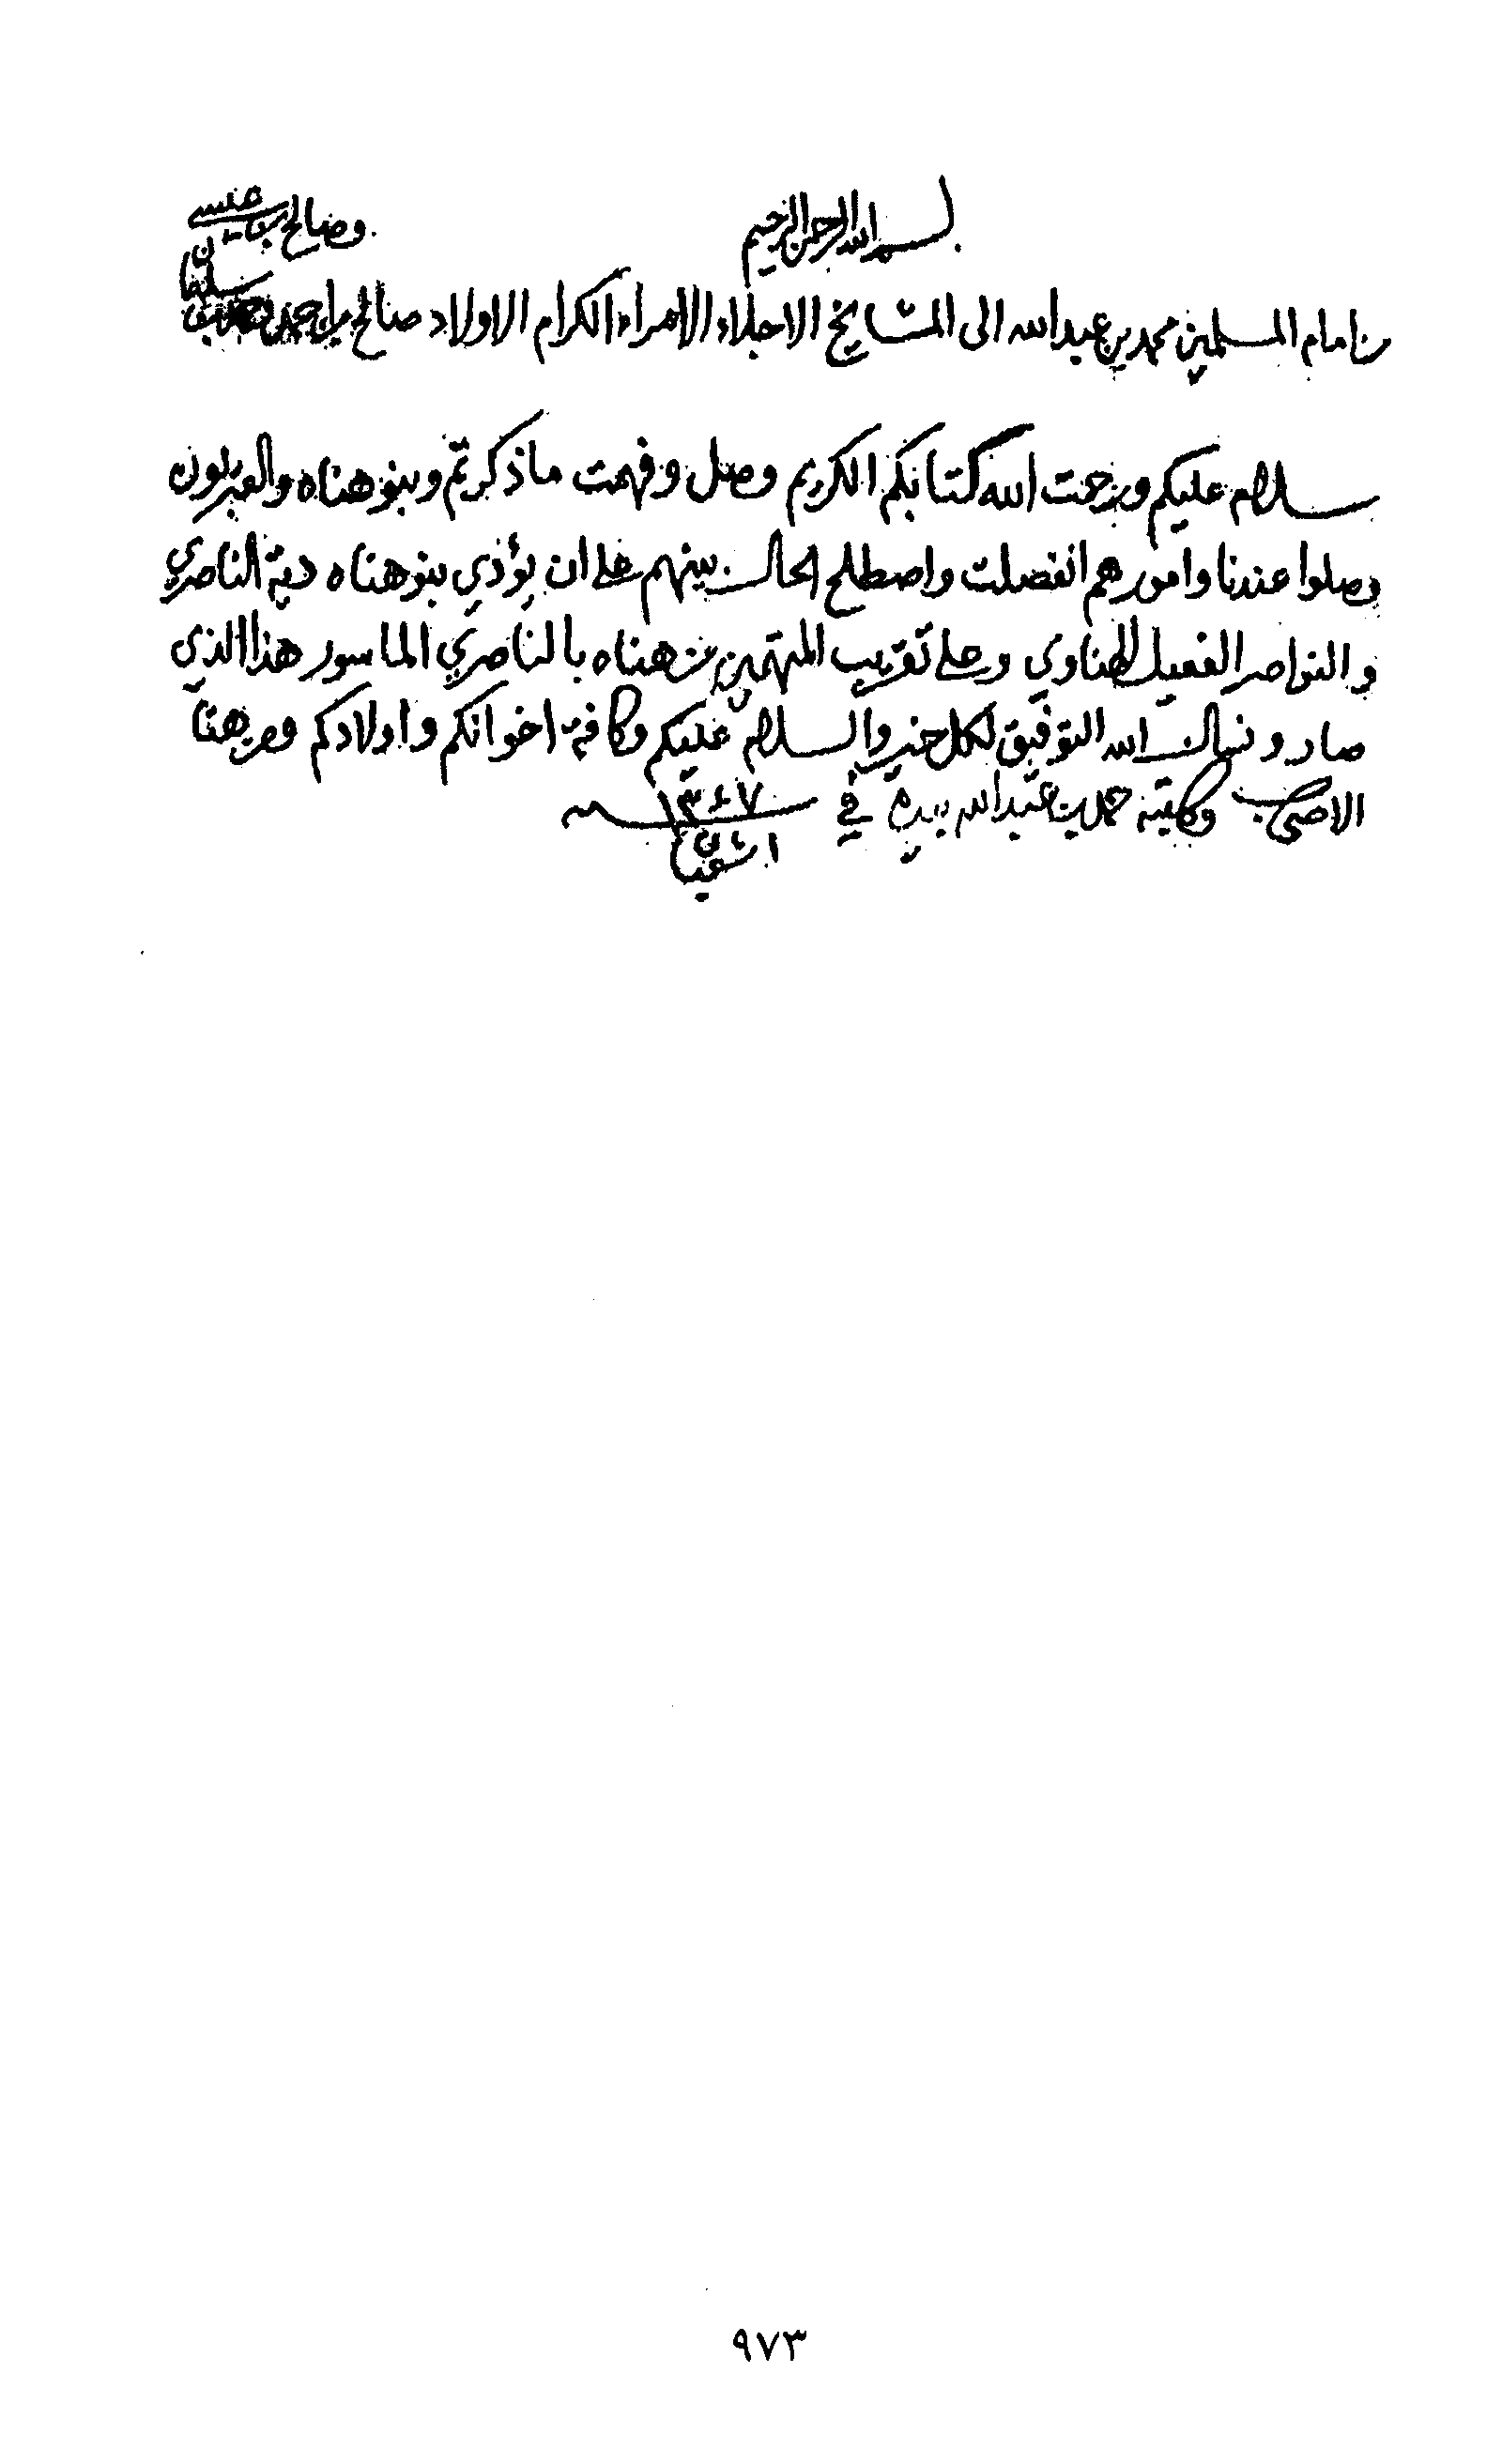 بسم الله الرحمن الرحيم
من امام المسلمين محمد بن عبدالله الى المشايخ الاجلاء الامراء الكرام الاولاد صالح بن احمد
وصالح بن عيسى
سلام عليكم ورحمت الله كتابكم الكريم وصل وفهمت ماذكرتم وبنو هناه والعبريون
وصلوا عندنا وامورهم انفصلت واصطلح الحال بينهم على ان يؤدي بنو هناه دية الناصري
والنواصر القعيل الهناوي وعلى تقريب المتهمين من هناه بالناصري الماسور هذا الذي
صار ونسال الله التوفيق لكل خير والسلام عليكم وكافة اخوانكم واولادكم ومن هنا
الاصحاب وكتبته محمد بن عبدالله بيده في
١ شعبان ١٣٤٧
٩٧٣